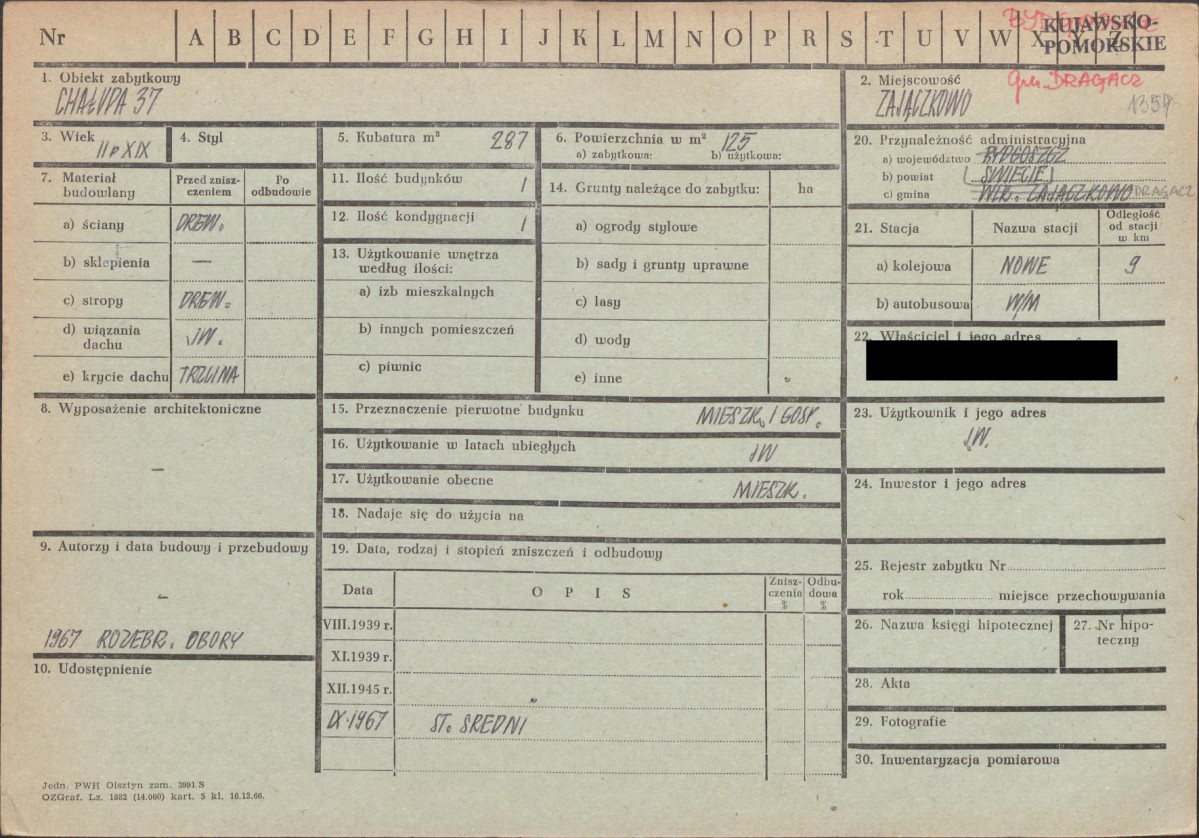 Nr A B C D E F G H I J K L M N O P R S T U V W X Y Z
KUJAWSKO-
POMORSKIE
1. Obiekt zabytkowy
CHAŁUPA 37
2. Miejscowość
gm. DRAGACZ
ZAJĄCZKOWO
1354
3. Wiek
II p XIX
4. Styl
5. Kubatura m³ 287
6. Powierzchnia w m² 125
a) zabytkowa: b) użytkowa:
7. Materiał budowlany
Przed zniszczeniem
Po odbudowie
a) ściany DREW.
b) sklepienia —
c) stropy DREW.
d) wiązania dachu JW.
e) krycie dachu TRZCINA
11. Ilość budynków 1
12. Ilość kondygnacji 1
13. Użytkowanie wnętrza
według ilości:
a) izb mieszkalnych
b) innych pomieszczeń
c) piwnic
14. Grunty należące do zabytku: ha
a) ogrody stylowe
b) sady i grunty uprawne
c) lasy
d) wody
e) inne
20. Przynależność administracyjna
a) województwo BYDGOSZCZ
b) powiat ŚWIECIE
c) gmina WLK. ZAJĄCZKOWO DRAGACZ
21. Stacja Nazwa stacji Odległość od stacji w km
a) kolejowa NOWE 9
b) autobusowa W/M
22. Właściciel i jego adres
8. Wyposażenie architektoniczne
—
15. Przeznaczenie pierwotne budynku MIESZK. I GOSP.
16. Użytkowanie w latach ubiegłych JW
17. Użytkowanie obecne MIESZK.
18. Nadaje się do użycia na
23. Użytkownik i jego adres
JW.
24. Inwestor i jego adres
9. Autorzy i data budowy i przebudowy
-
1967 ROZEBR. OBORY
10. Udostępnienie
19. Data, rodzaj i stopień zniszczeń i odbudowy
Data OPIS Zniszczenia % Odbudowa %
VIII.1939 r.
XI.1939 r.
XII.1945 r.
IX.1967 ST. ŚREDNI
25. Rejestr zabytku Nr
rok miejsce przechowywania
26. Nazwa księgi hipotecznej
27. Nr hipoteczny
28. Akta
29. Fotografie
30. Inwentaryzacja pomiarowa
Jedn. PWH Olsztyn zam. 3991 S
OZGraf. Lz. 1882 (14.000) kart. 5 kl. 16.12.66.